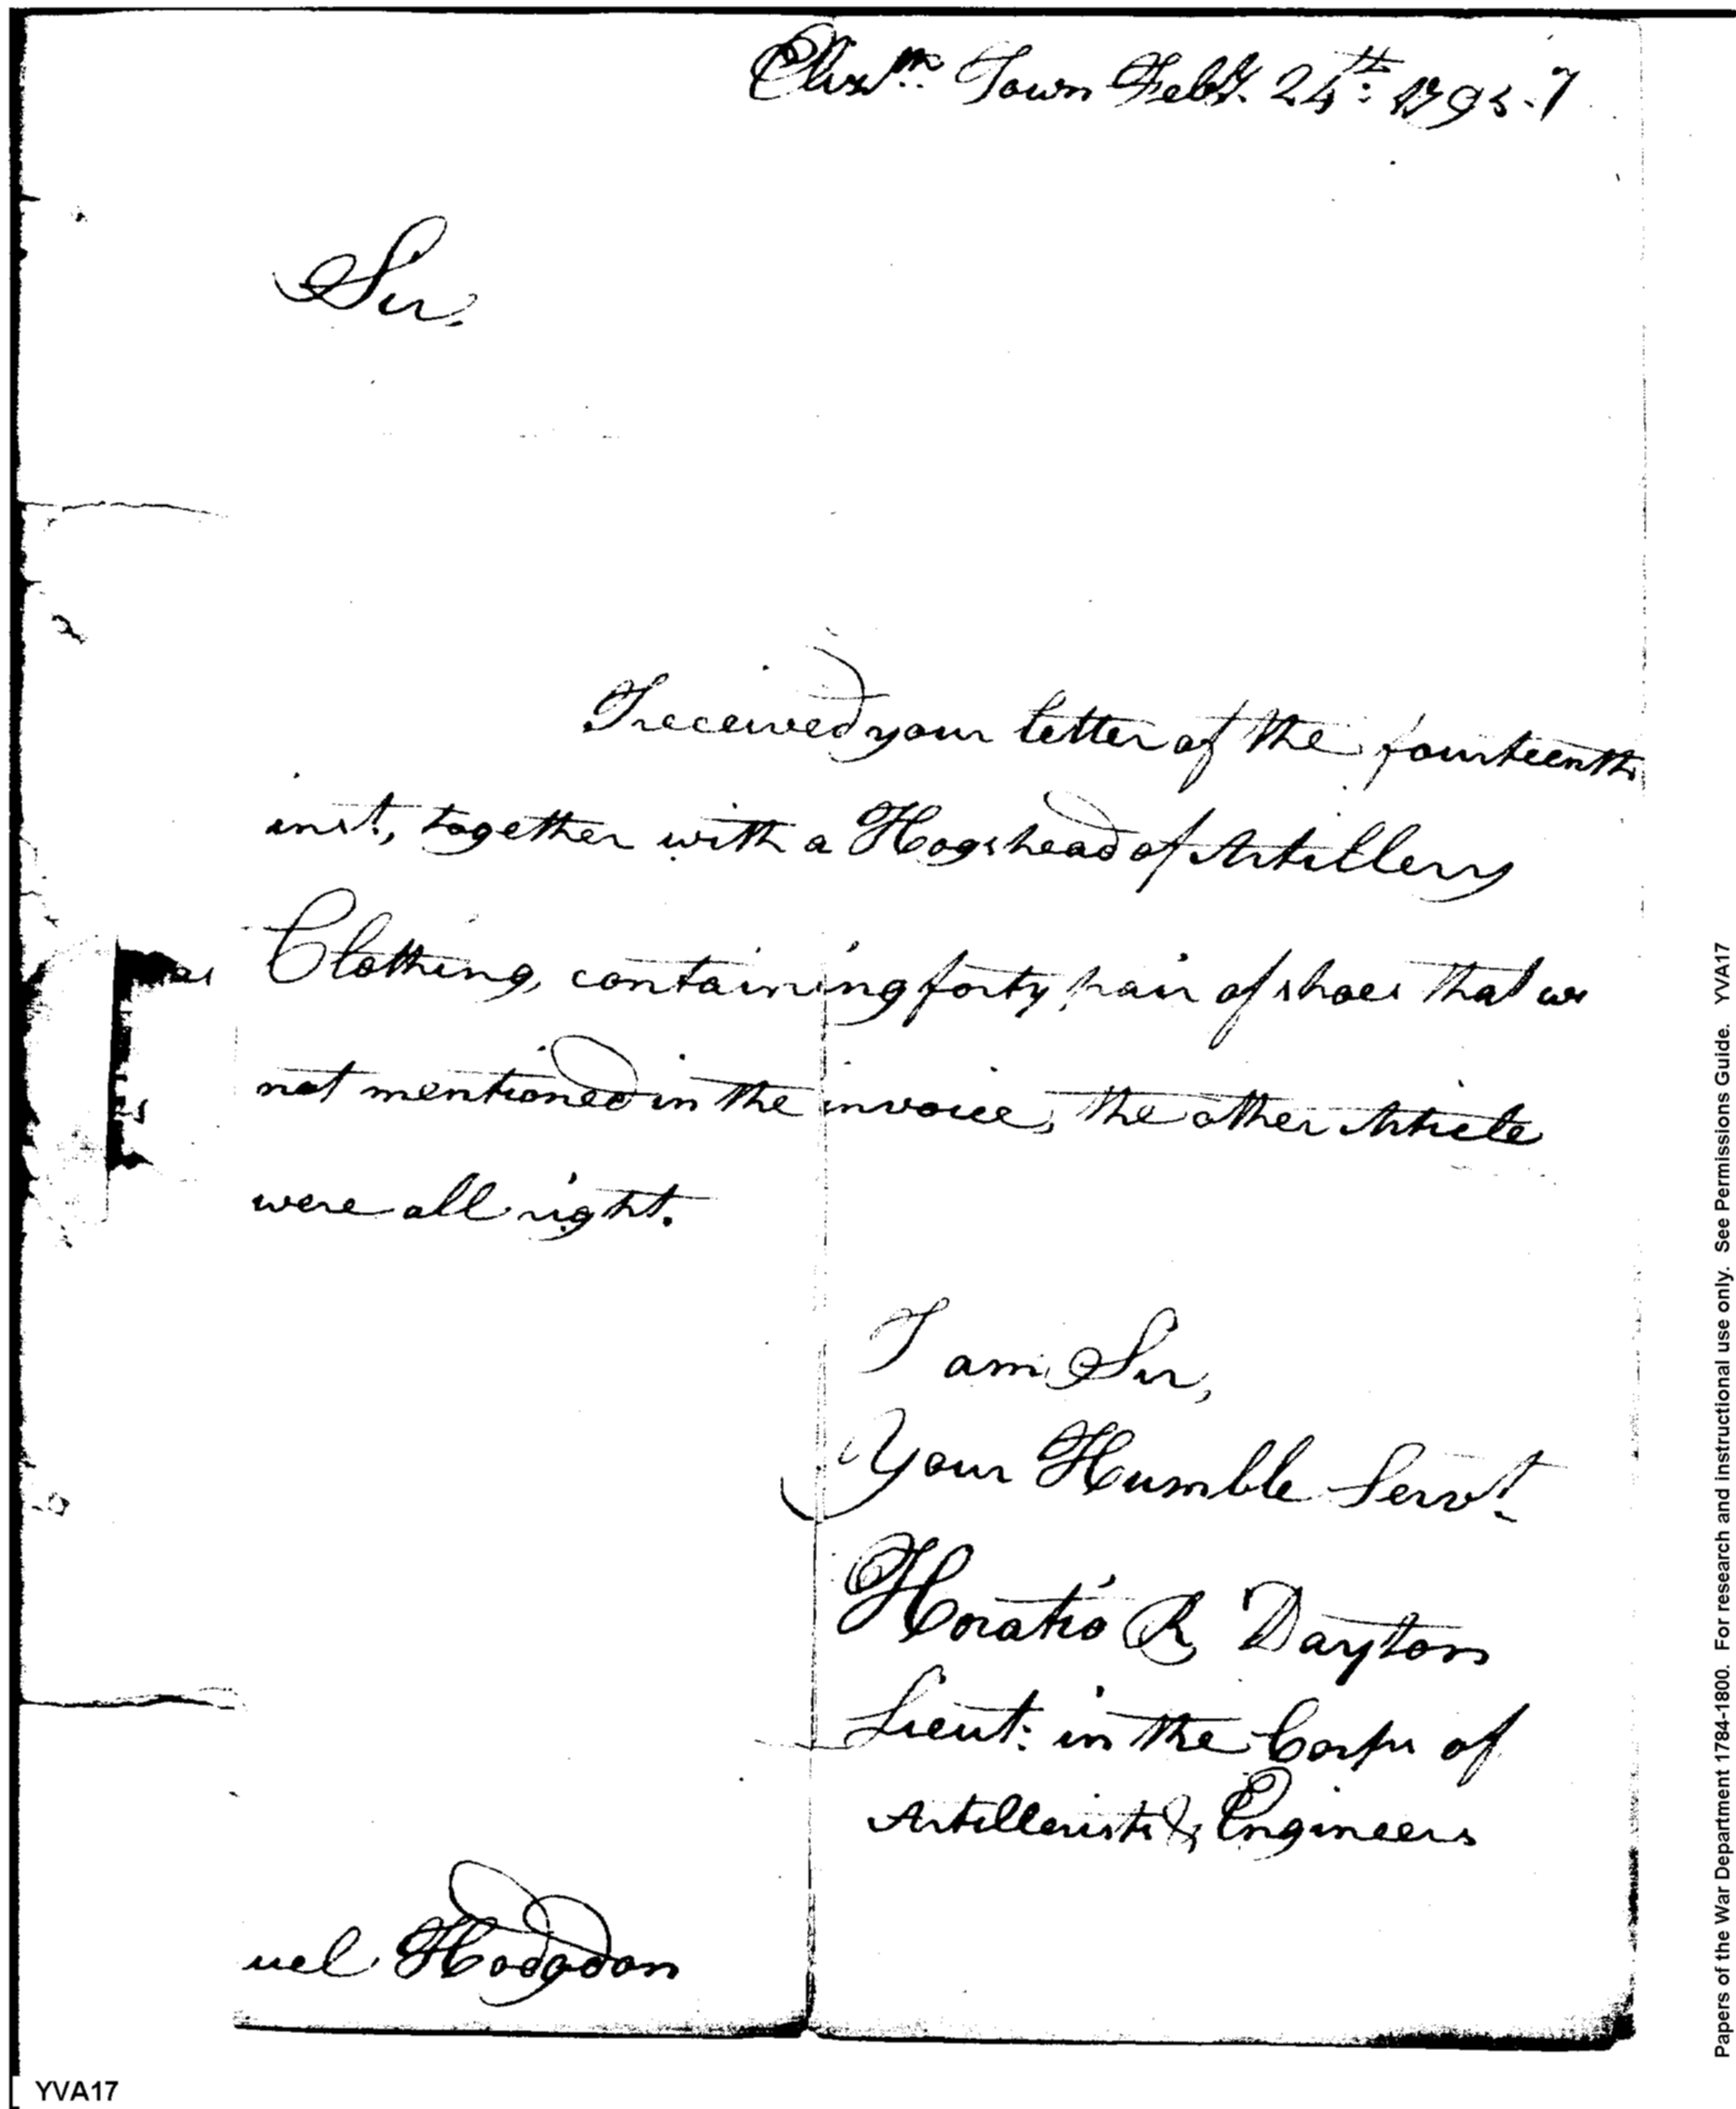 Elizth. Town Feby. 24th: 1795.7
Sir.
I received your letter of the fourteenth
inst, together with a Hogshead of Artillery
Clothing, containing forty pair of shoes that we
not mentioned in the invoice, the other Article
were all right.
I am Sir,
Your Humble Servt.
Horatio R Dayton
Lieut: in the Corps of
Artillerists & Engineers
uel Hodgdon
YVA17
Papers of the War Department 1784-1800. For research and instructional use only. See Permissions Guide. YVA17